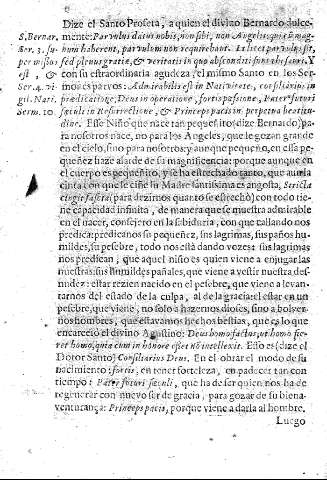 Dize el Santo Profeta, a quien el divino Bernardo dulce-
S. Bernar. mente: Parvulus datus nobis, non sibi, non Angelis, qui
ser. 3. suum haberent, parvulum non requirebant. Et licet parvulus sit,
per missos sed plenus gratia, & veritatis in quo absconditi sunt thesauri. Y
est, & con su estraordinaria agudeza, el mismo Santo en los Ser-
Ser. 4. vi- mones parvos: Admirabilis est in Nativitate, consiliarius in
gil. Nati. prædicatione, Deus in operatione, fortis passione, Pater futuri
Serm. 10. sæculi in Resurrectione, & Princeps pacis in perpetua beatitu-
dine. Esse Niño que nace tan pequeñito (dize Bernardo) pa-
ra nosotros nace, no para los Angeles, que le gozan grande
en el cielo, sino para nosotros: y aunque pequeño, en essa pe-
queñez haze alarde de su magnificencia: porque aunque en
el cuerpo es pequeñito, y se ha estrechado tanto, que aun la
cinta con que le ciñe la Madre santissima es angosta, Stricta
cingit fascia (para dezirnos quanto se estrechò) con todo tie-
ne capacidad infinita, de manera que se muestra admirable
en el nacer, consejero en la sabiduria, con que callando nos
predica: predicanos su pequeñez, sus lagrimas, sus paños hu-
mildes, su pesebre, todo nos està dando vozes: sus lagrimas
nos predican, que aquel niño es quien viene a enjugar las
nuestras: sus humildes pañales, que viene a vestir nuestra des-
nudez: estar rezien nacido en el pesebre, que viene a levan-
tarnos del estado de la culpa, al de la gracia: el estar en un
pesebre, que viene, no solo a hazernos dioses, sino a bolver-
nos hombres, que estavamos hechos bestias, que es lo que
encareciò el divino Agustino: Deus homo factus, ut homo fie-
ret homo, quia cum in honore esset non intellexit. Esso es (dize el
Dotor Santo) Consiliarius Deus. En el obrar el modo de su
nacimiento: fortis, en tener fortaleza, en padecer tan con
tiempo: Pater futuri sæculi, que ha de ser quien nos ha de
regenerar con nuevo ser de gracia, para gozar de su biena-
venturança: Princeps pacis, porque viene a darla al hombre.
Luego